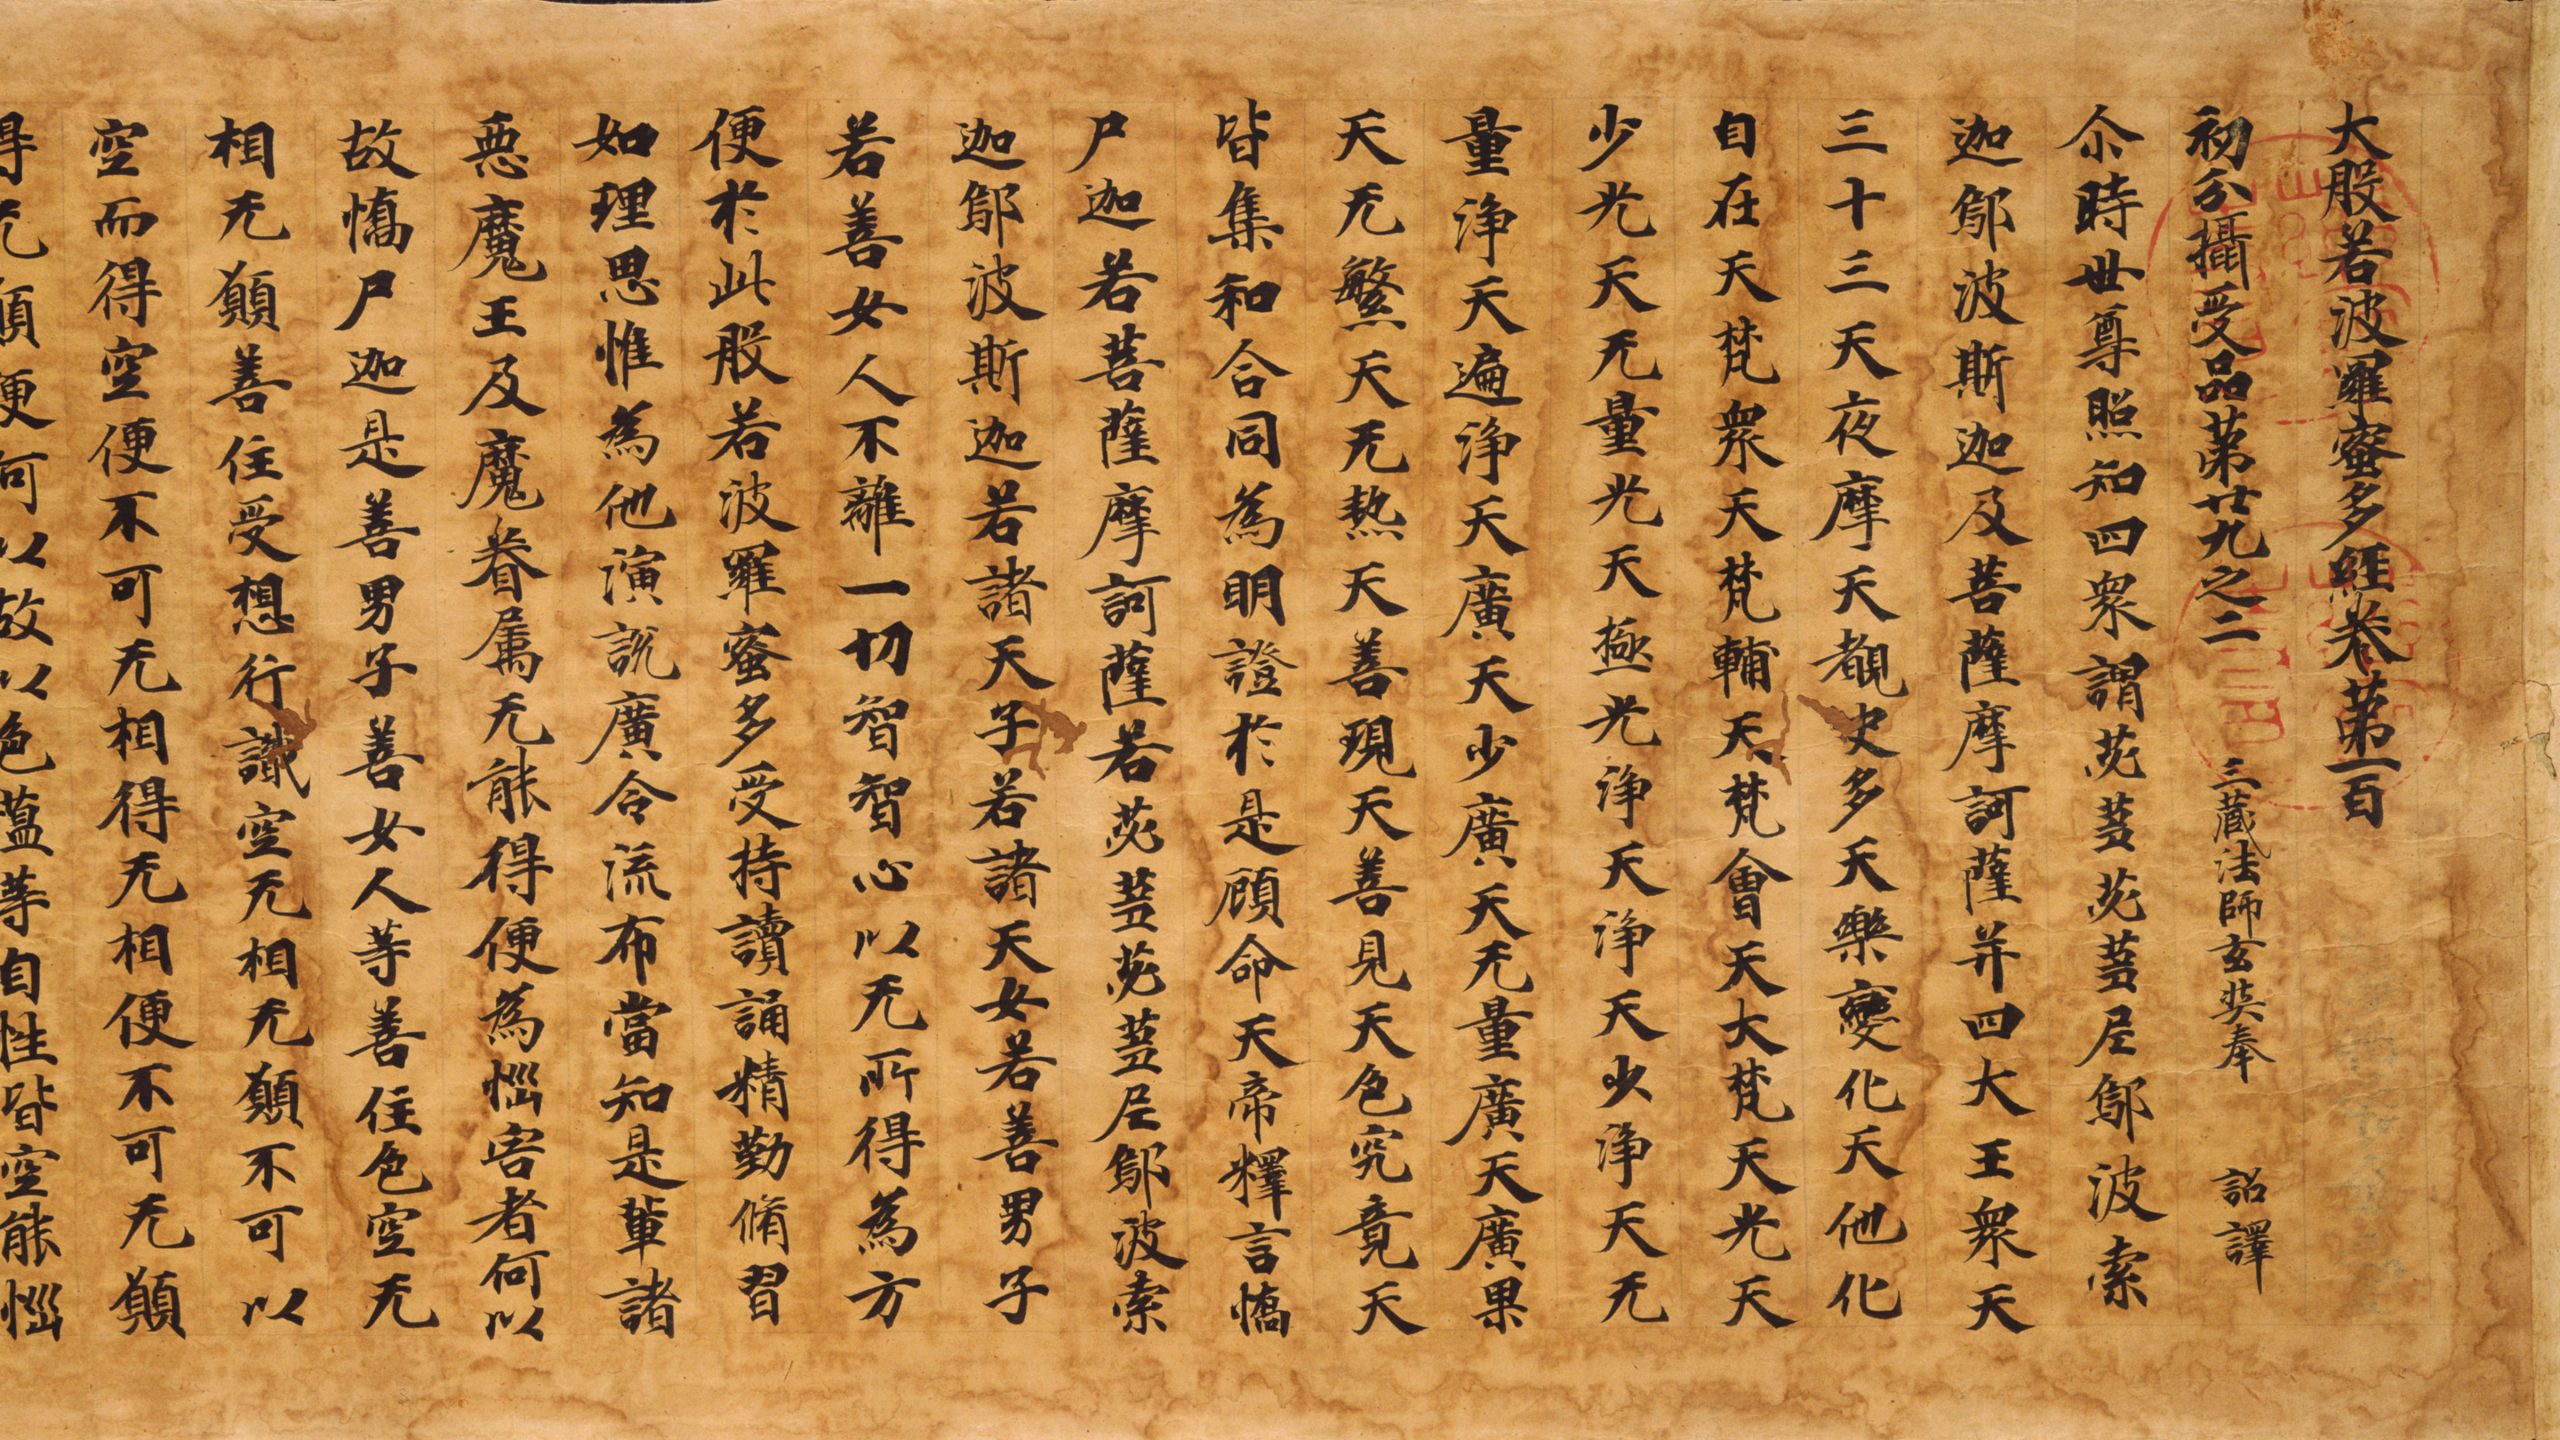 大般若波羅蜜多經卷第一百
初分攝受品第廿九之二 三蔵法師玄奘奉 詔譯
尒時世尊照知四衆謂苾蒭苾蒭尼鄔波索
迦鄔波斯迦及菩薩摩訶薩并四大王衆天
三十三天夜摩天覩史多天樂變化天他化
自在天梵衆天梵輔天梵會天大梵天光天
少光天无量光天極光淨天淨天少淨天无
量淨天遍淨天廣天少廣天无量廣天廣果
天无繁天无熱天善現天善見天色究竟天
皆集和合同為明證於是顧命天帝釋言憍
尸迦若菩薩摩訶薩若苾蒭苾蒭尼鄔波索
迦鄔波斯迦若諸天子若諸天女若善男子
若善女人不離一切智智心以无所得為方
便於此般若波羅蜜多受持讀誦精勤脩習
如理思惟為他演說廣令流布當知是輩諸
惡魔王及魔眷属无能得便為惱害者何以
故憍尸迦是善男子善女人等善住色空无
相无願善住受想行識空无相无願不可以
空而得空便不可无相得无相便不可无願
得无願便何以故以色蘊等自性皆空能惱